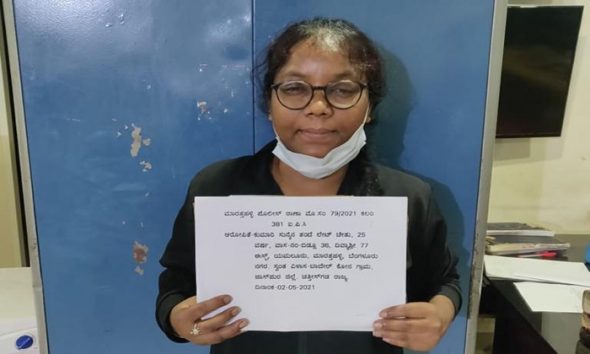 ಮಾರತ್ತಹಳ್ಳಿ ಪೊಲೀಸ್ ಠಾಣಾ ಮೊ.ಸಂ 79/2021 ಕಲಂ
381 ಐ.ಪಿ.ಸಿ
ಆರೋಪಿತೆ-ಕುಮಾರಿ ಸುನೈನ ತಂದೆ ಲೇಟ್ ಚೇತು, 25
ವರ್ಷ, ವಾಸ-ನಂ-ಡಬ್ಲೂ 36, ದಿವ್ಯಾಶ್ರೀ 77
ಈಸ್ಟ್, ಯಮಲೂರು, ಮಾರತ್ತಹಳ್ಳಿ, ಬೆಂಗಳೂರು
ನಗರ. ಸ್ವಂತ ವಿಳಾಸ ಕೋನ ಗ್ರಾಮ,
ಜಿಲ್ಲೆ, ಚತ್ತೀಸ್‌ಗಡ ರಾಜ್ಯ
ದಿನಾಂಕ-02-05-2021